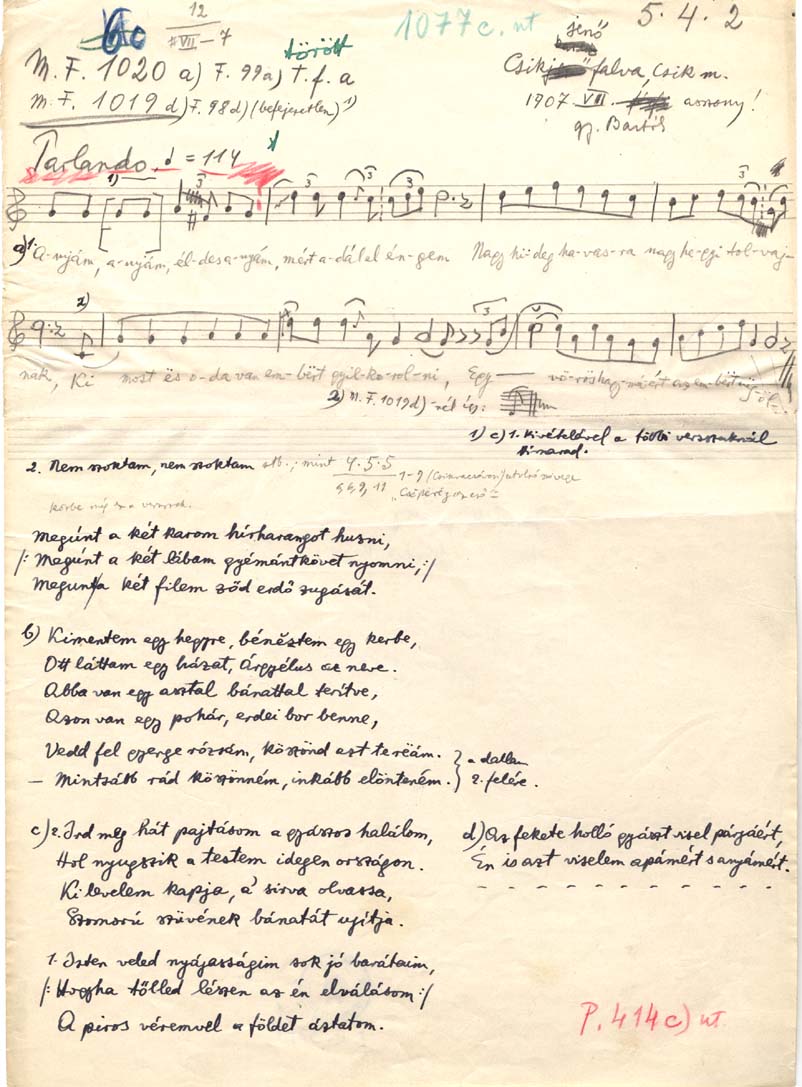 12
VII – 7
1077c. nt
5.4.2
jenő
M.F. 1020 a) F. 99a) T.f.a
törött
Csik falva, Csik m.
M.F. 1019 d) F. 98d) (befejezetlen) 1)
1907. VII. asszony!
gy. Bartók
Parlando, ♩ = 114
1)
3 3 3 3
a) 1. A-nyám, a-nyám, él-des a-nyám, mért a-dál el én-gem Nagy hi-deg ha-vas-ra nagy he-gyi tol-vaj-
2)
3
nak, Ki most ës o-da van em-bërt gyil-ko-rol-ni, Egy
2) M.F. 1019d)-nél így:
1) c) 1. kivételével a többi versszaknál
kimarad.
2. Nem szoktam, nem szoktam stb.; mint 4.5.5
Megúnt a két karom hírharangot huzni,
/: Megúnt a két lábam gyémántkövet nyomni, :/
Megunta két filem zöd erdő zugását.
b) Kimentem egy hegyre, bénéztem egy kerbe,
Ott láttam egy házat, Árgyélus az neve.
Abba van egy asztal bánattal terítve,
Azon van egy pohár, erdei bor benne,
Vedd fel gyenge rózsám, köszönd azt te rëám.
– Mintsább rád köszönném, inkább elönteném.
a dallam
2. felére.
c) 2. Ird meg hát pajtásom a gyászos halálom,
Hol nyugszik a testem idegen országon.
Ki levelem kapja, a' sirva olvassa,
Szomorú szüvének bánatát ujítja.
d) Az fekete holló gyászt visel párjáért,
Én is azt viselem apámért s anyámért.
- - - - - - - - - -
1. Isten veled nyájasságim sok jó barátaim,
/: Hogyha tőlled lészen az én elválásom :/
A piros véremvel a földet áztatom.
P. 414c) nt.